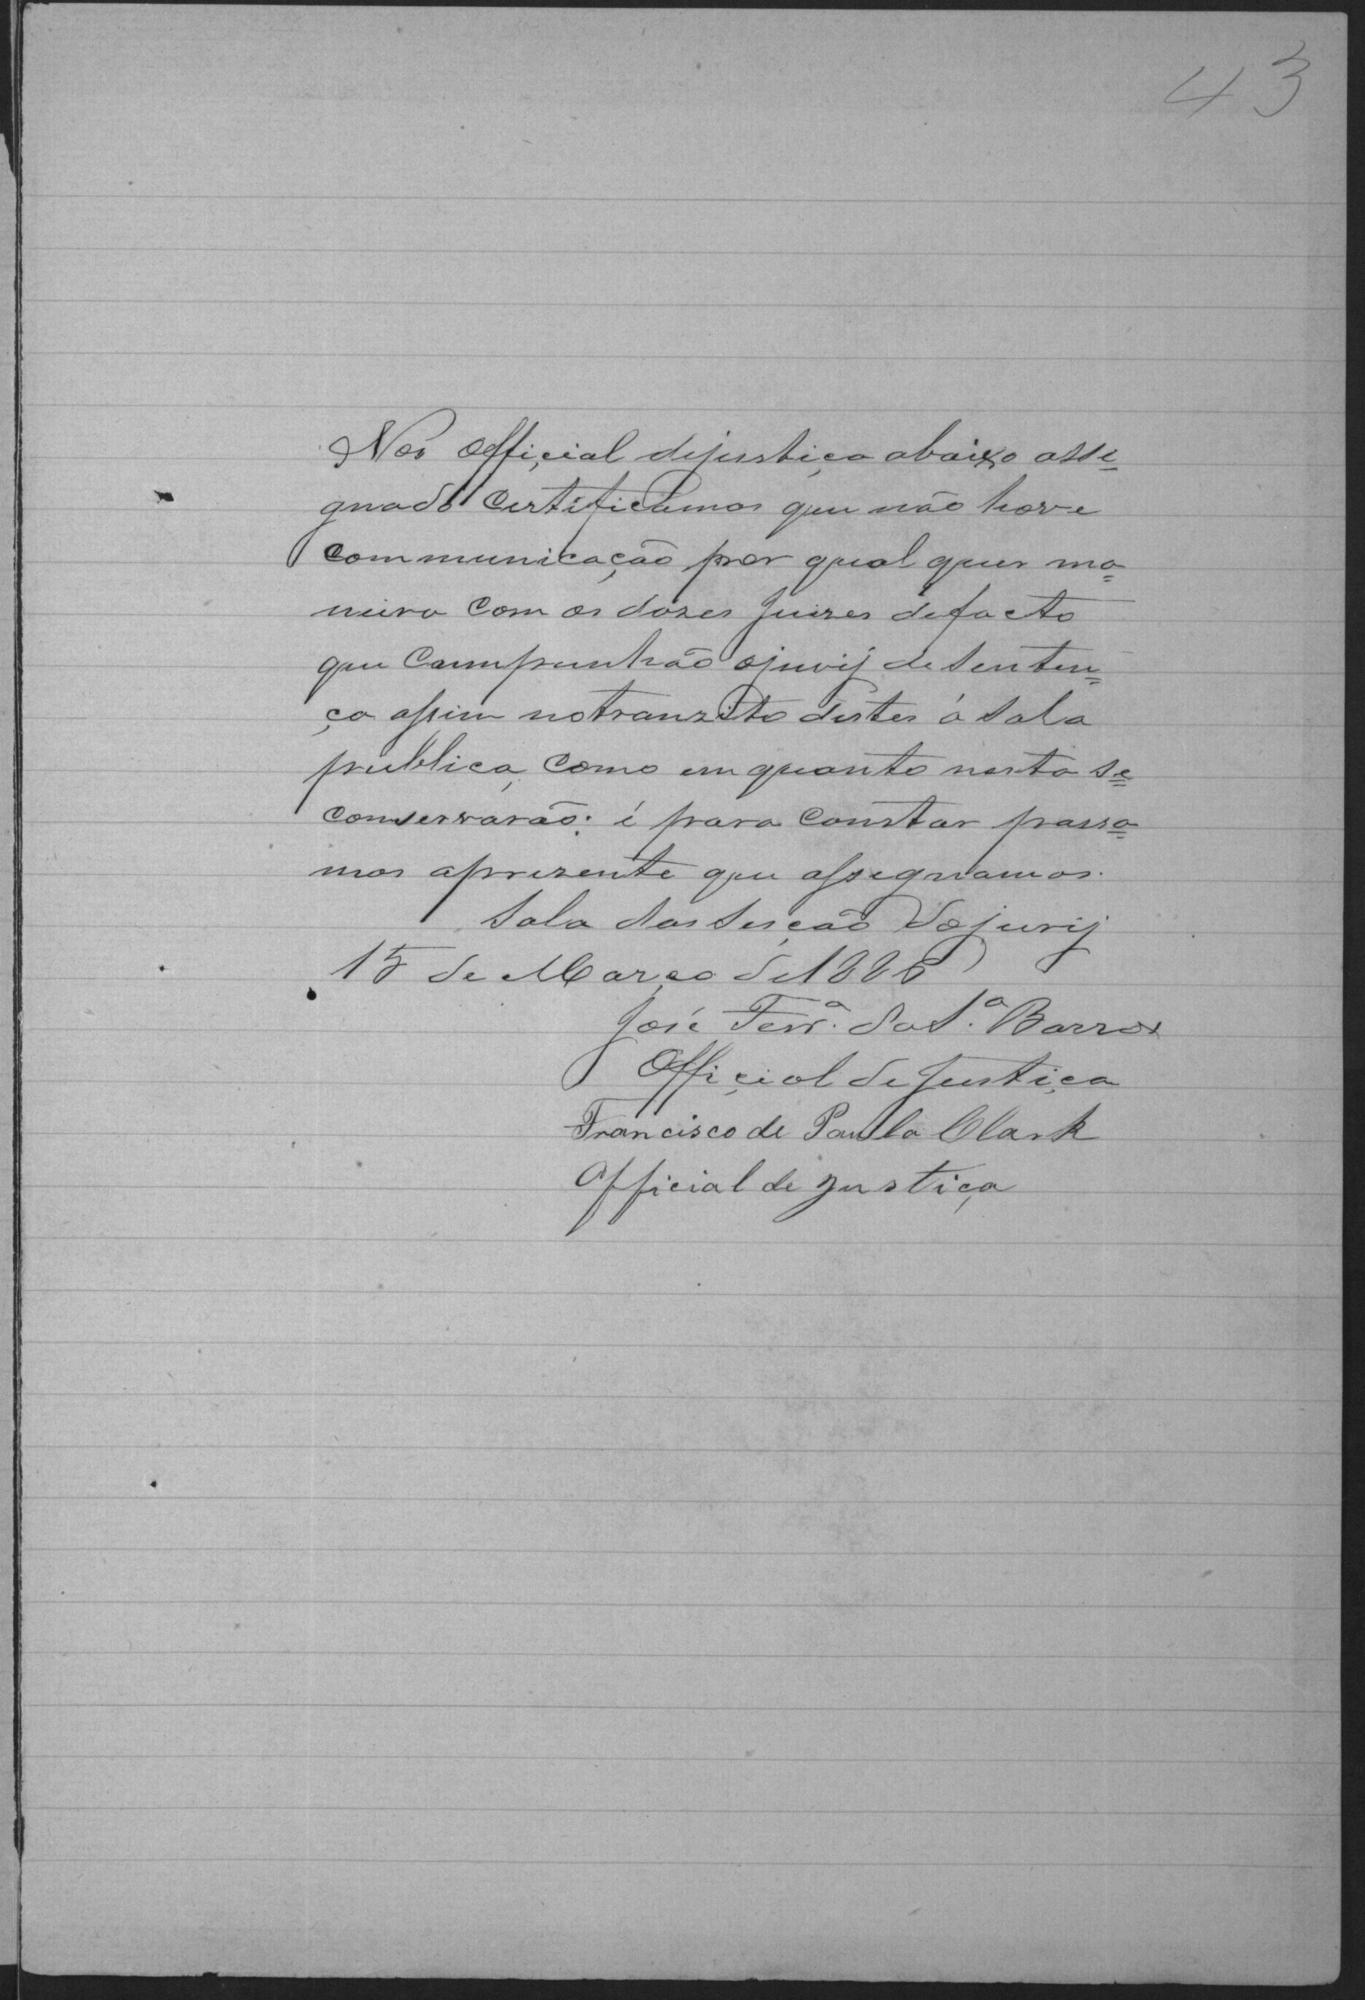 43
Nós Offiçial dijustiça abaixo asse=
gnado Certificamos que não hove
communicação por qual quer ma=
neira com os dozes Juizes defacto
que Coumpunhão ojurij de Senten=
ça assim notranzito destes á Sala
publiça como em quanto nesta se=
conservarão: é para Constar passa=
mos aprezente que assegnamos.
Sala das Sesção dojurij
15 de Março de 1886
José Ferrª. da Sª. Barros
Offiçial de Justiça
Francisco de Paula Clark
Official de Justiça